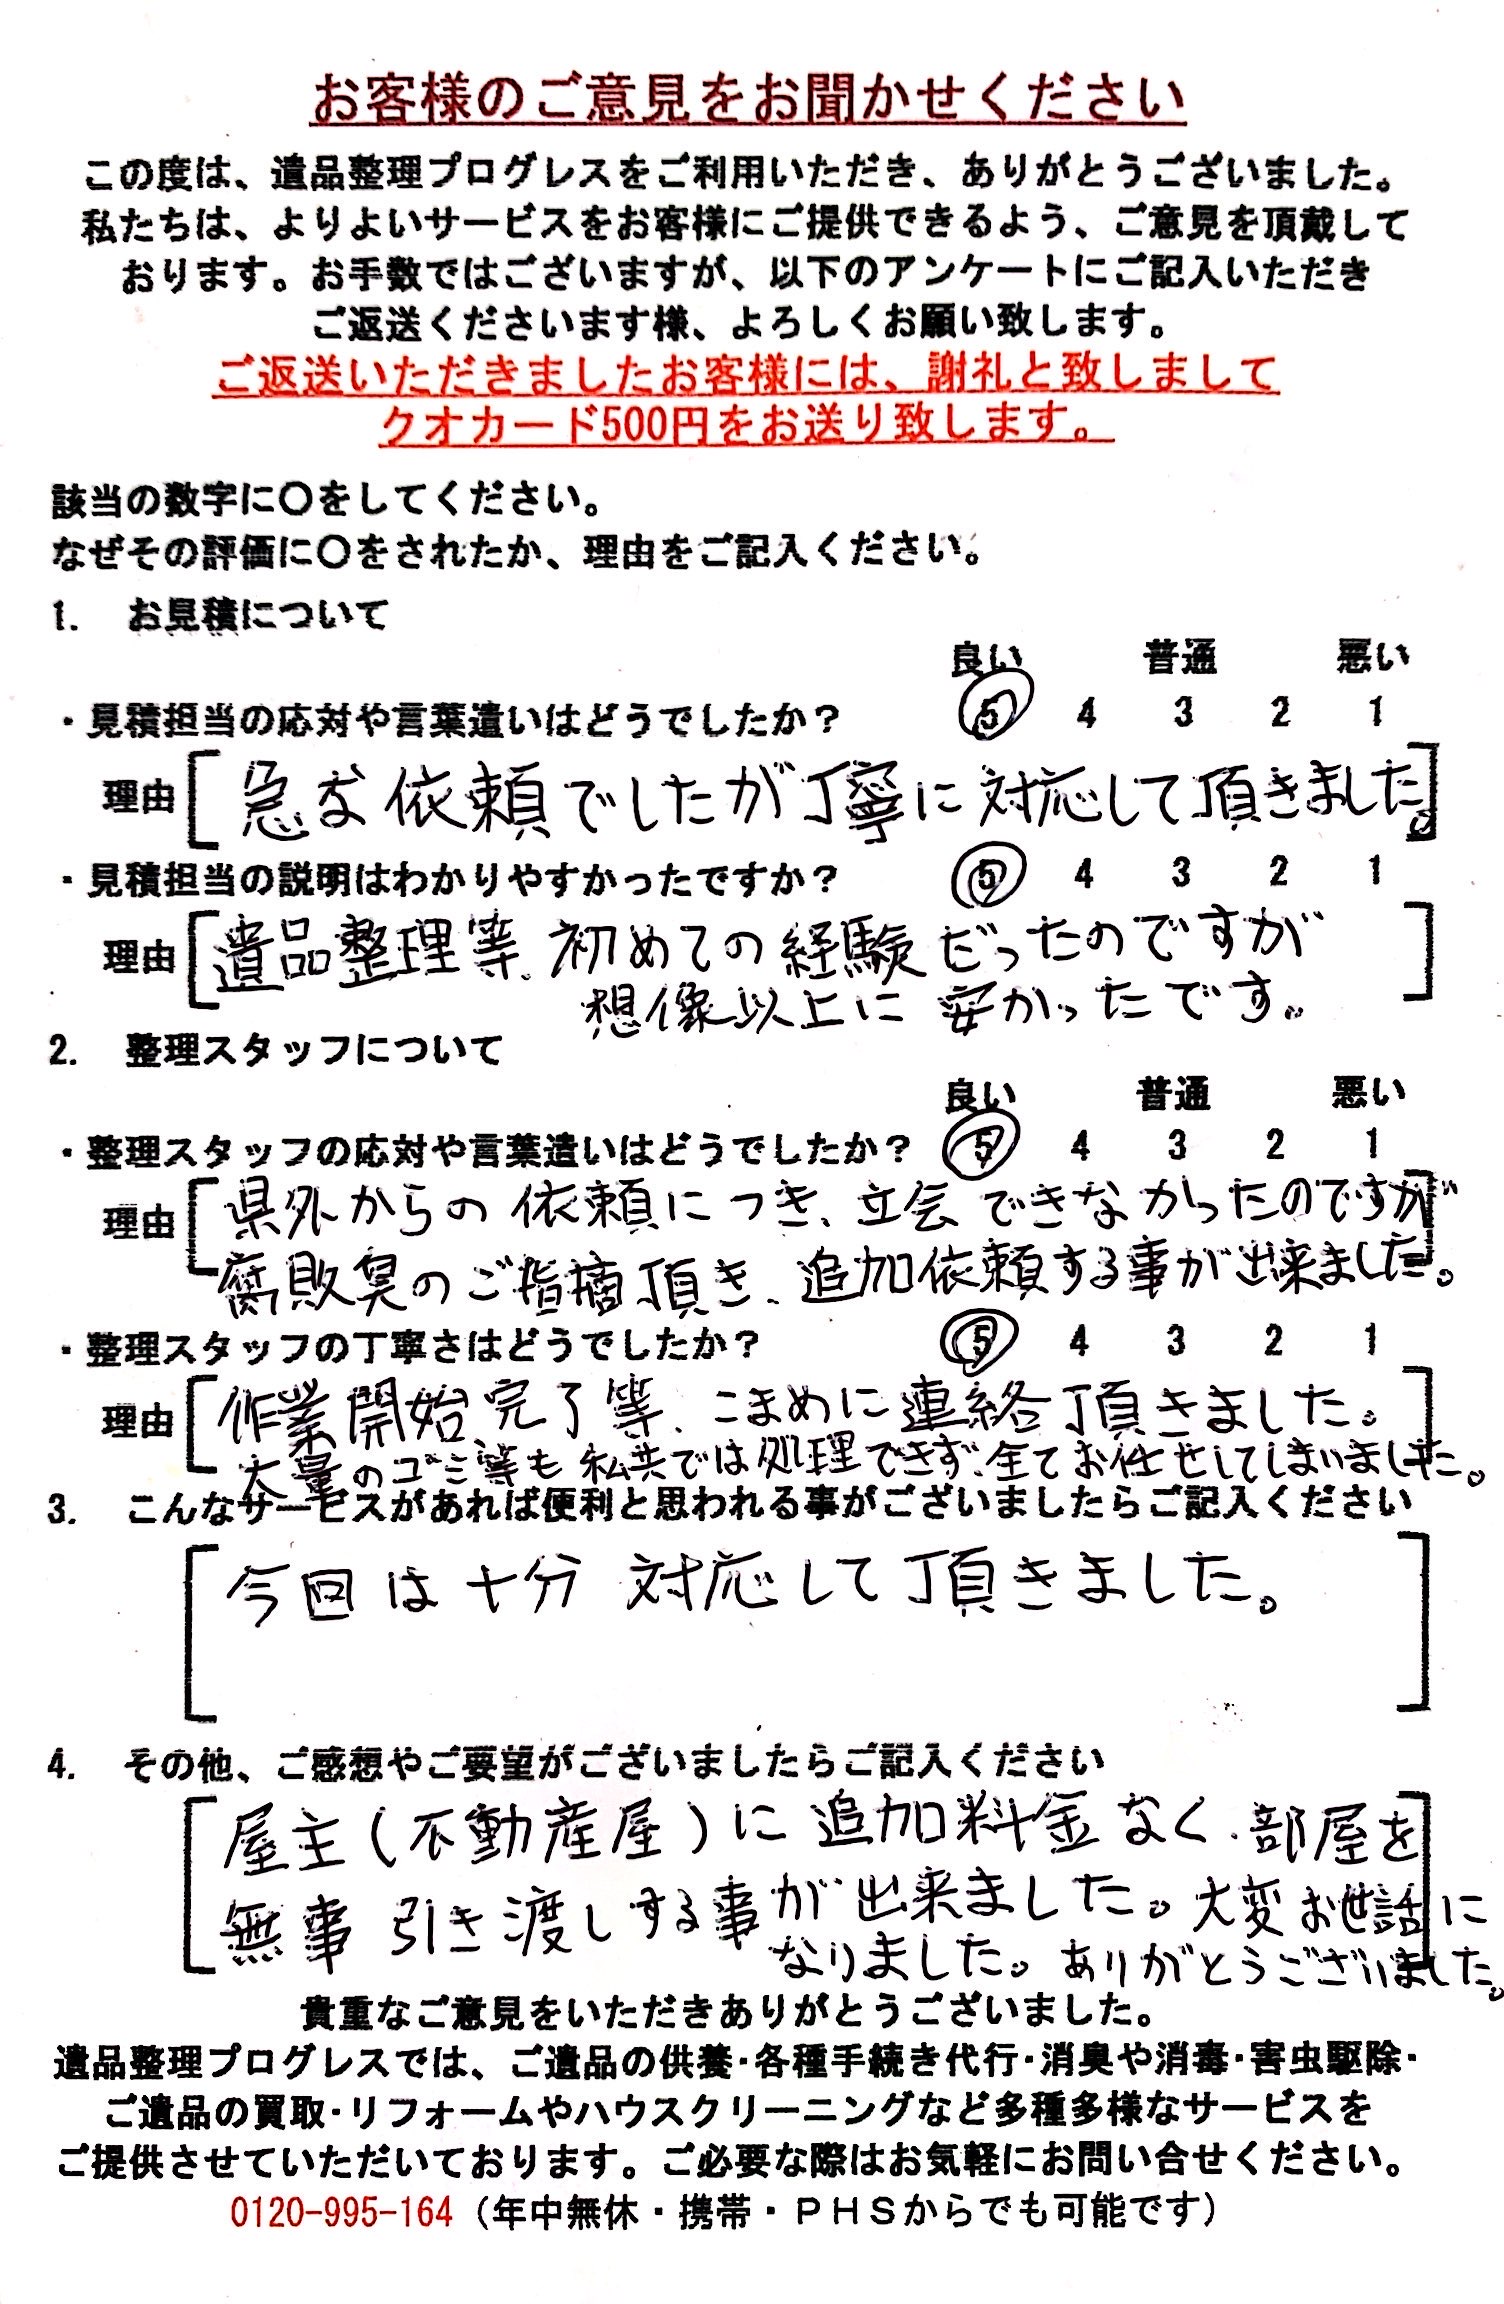 お客様のご意見をお聞かせください
この度は、遺品整理プログレスをご利用いただき、ありがとうございました。
私たちは、よりよいサービスをお客様にご提供できるよう、ご意見を頂戴して
おります。お手数ではございますが、以下のアンケートにご記入いただき
ご返送くださいます様、よろしくお願い致します。
ご返送いただきましたお客様には、謝礼と致しまして
クオカード500円をお送り致します。
該当の数字に〇をしてください。
なぜその評価に〇をされたか、理由をご記入ください。
1. お見積について
良い 普通 悪い
・見積担当の応対や言葉遣いはどうでしたか？ 5 4 3 2 1
理由 急な依頼でしたが丁寧に対応して頂きました。
・見積担当の説明はわかりやすかったですか？ 5 4 3 2 1
理由 遺品整理等、初めての経験だったのですが
想像以上に安かったです。
2. 整理スタッフについて
良い 普通 悪い
・整理スタッフの応対や言葉遣いはどうでしたか？ 5 4 3 2 1
理由 県外からの依頼につき、立会できなかったのですが
腐敗臭のご指摘頂き、追加依頼する事が出来ました。
・整理スタッフの丁寧さはどうでしたか？ 5 4 3 2 1
理由 作業開始、完了等、こまめに連絡頂きました。
大量のゴミ等も私共では処理できず、全てお任せしてしまいました。
3. こんなサービスがあれば便利と思われる事がございましたらご記入ください
今回は十分対応して頂きました。
4. その他、ご感想やご要望がございましたらご記入ください
屋主(不動産屋)に追加料金なく、部屋を
無事引き渡しする事が出来ました。大変お世話に
なりました。ありがとうございました。
貴重なご意見をいただきありがとうございました。
遺品整理プログレスでは、ご遺品の供養・各種手続き代行・消臭や消毒・害虫駆除・
ご遺品の買取・リフォームやハウスクリーニングなど多種多様なサービスを
ご提供させていただいております。ご必要な際はお気軽にお問い合せください。
0120-995-164（年中無休・携帯・ＰＨＳからでも可能です）